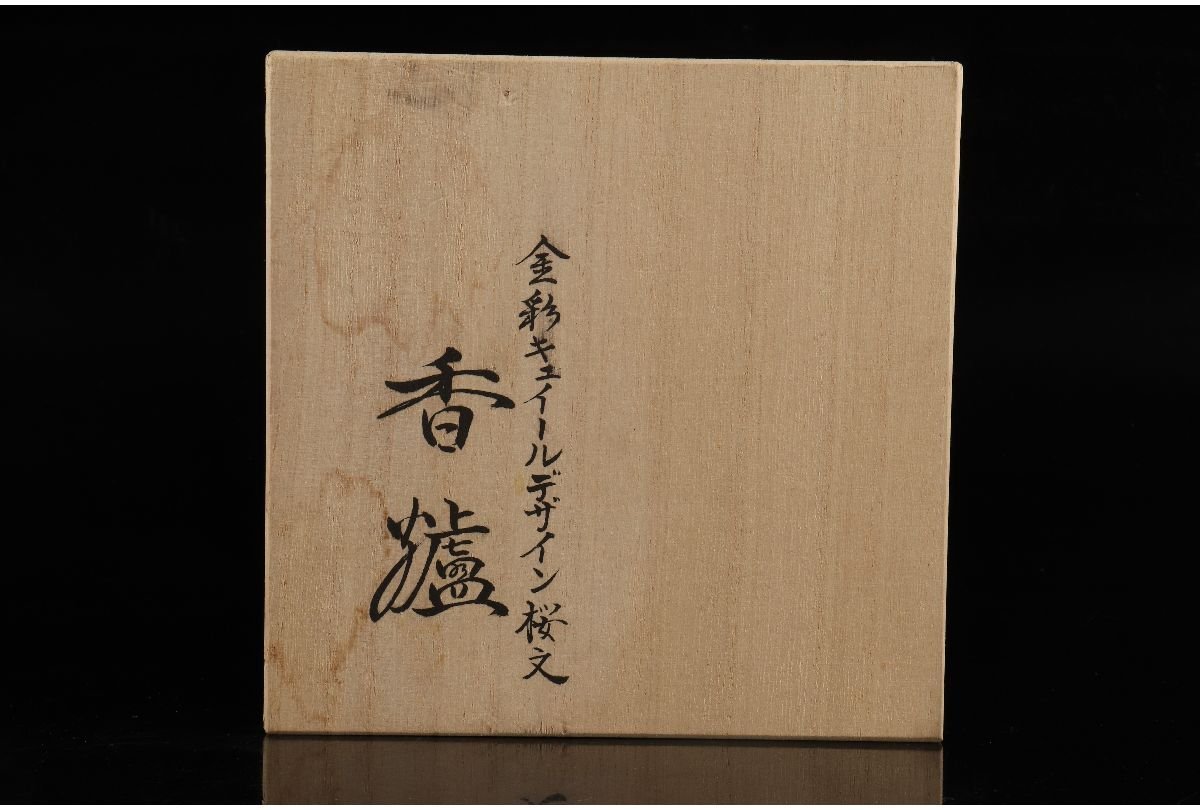 金彩キュイールデザイン桜文
香爐